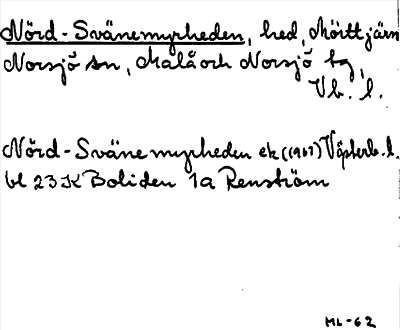 Nörd-Svänemyrheden, hed, Mörttjärn
Norsjö sn, Malå och Norsjö tg,
Vb. l.
Nörd-Svänemyrheden ek (1961) Västerb. l.
bl 23 K Boliden 1a Renström
ML-62